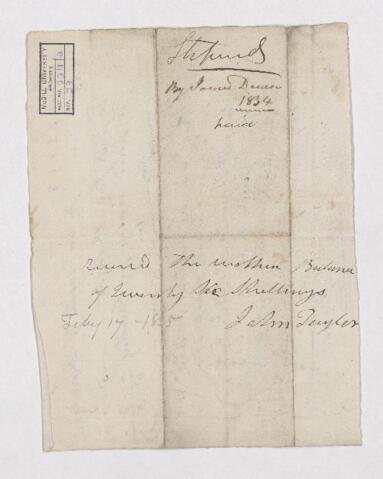 McGILL UNIVERSITY
ARCHIVES
ACC. NO.
REF.
Stipends
By James
1834
paid
received the within Balance
of Twenty Six Shillings
Feby 17 - 1835
John Taylor